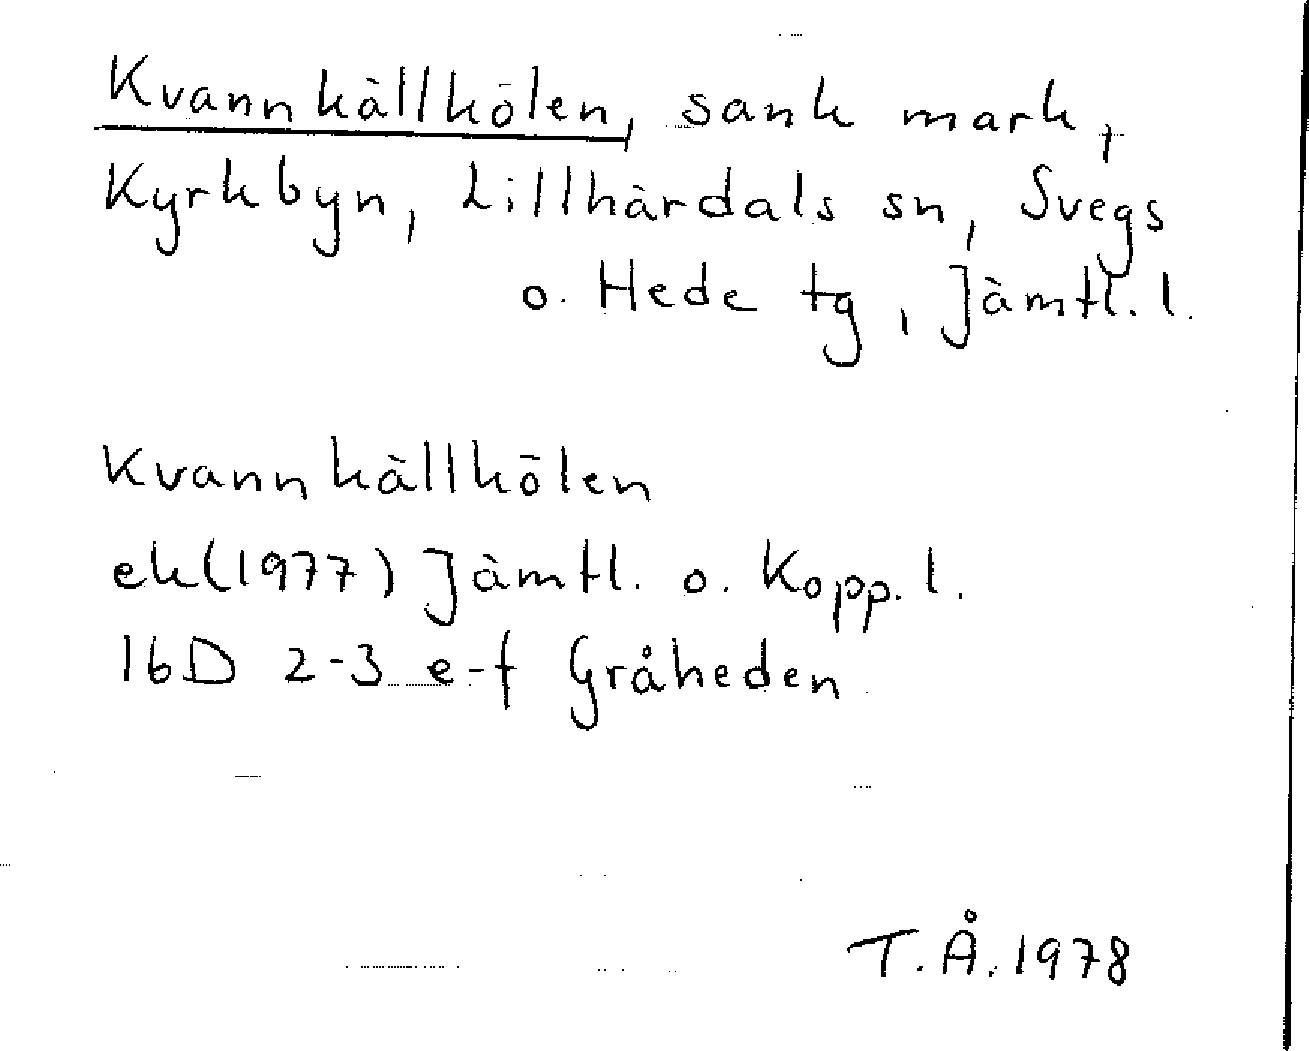 Kvannkällkölen, sank mark,
Kyrkbyn, Lillhärdals sn, Svegs
o. Hede tg, Jämtl. l.
Kvannkällkölen
ek(1977) Jämtl. o. Kopp. l.
16D 2-3 e-f Gråheden
T.Å. 1978